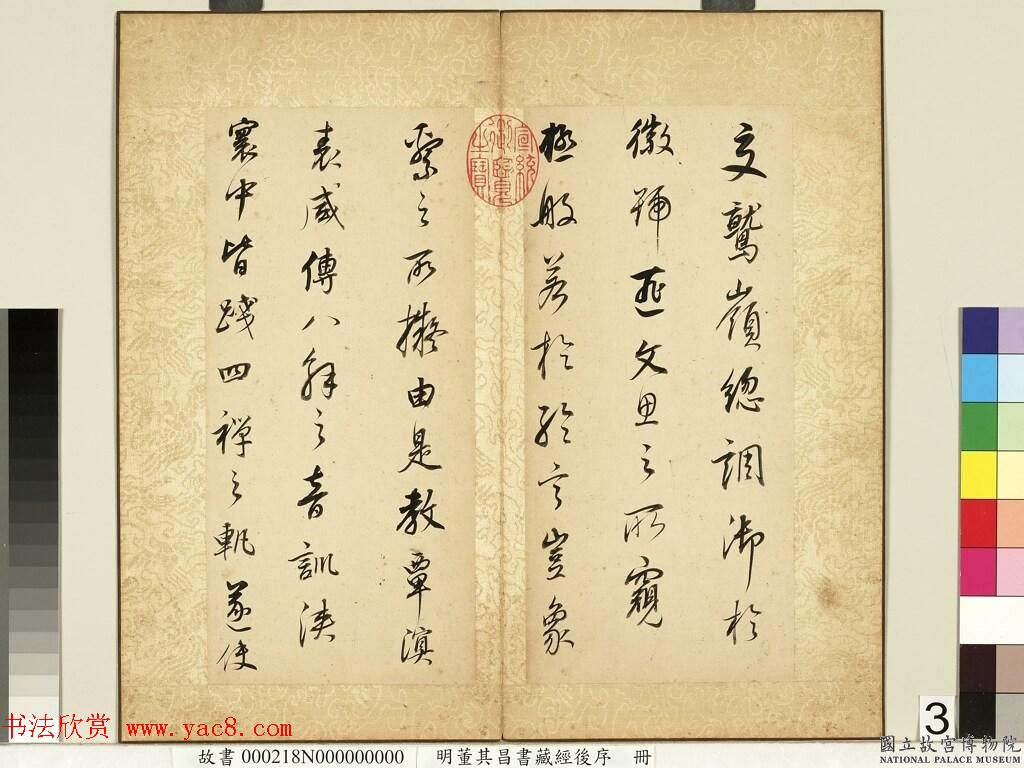 交鷲嶺總調御於
徽號匪文思之所窺
極般若於綸言豈象
宣統御覽之寶
繫之所擬由是教覃溟
表咸傳八解之音訓浹
寰中皆踐四禪之軌遂使
3
书法欣赏 www.yac8.com
故書 000218N000000000 明董其昌書藏經後序 冊
國立故宮博物院
NATIONAL PALACE MUSEUM